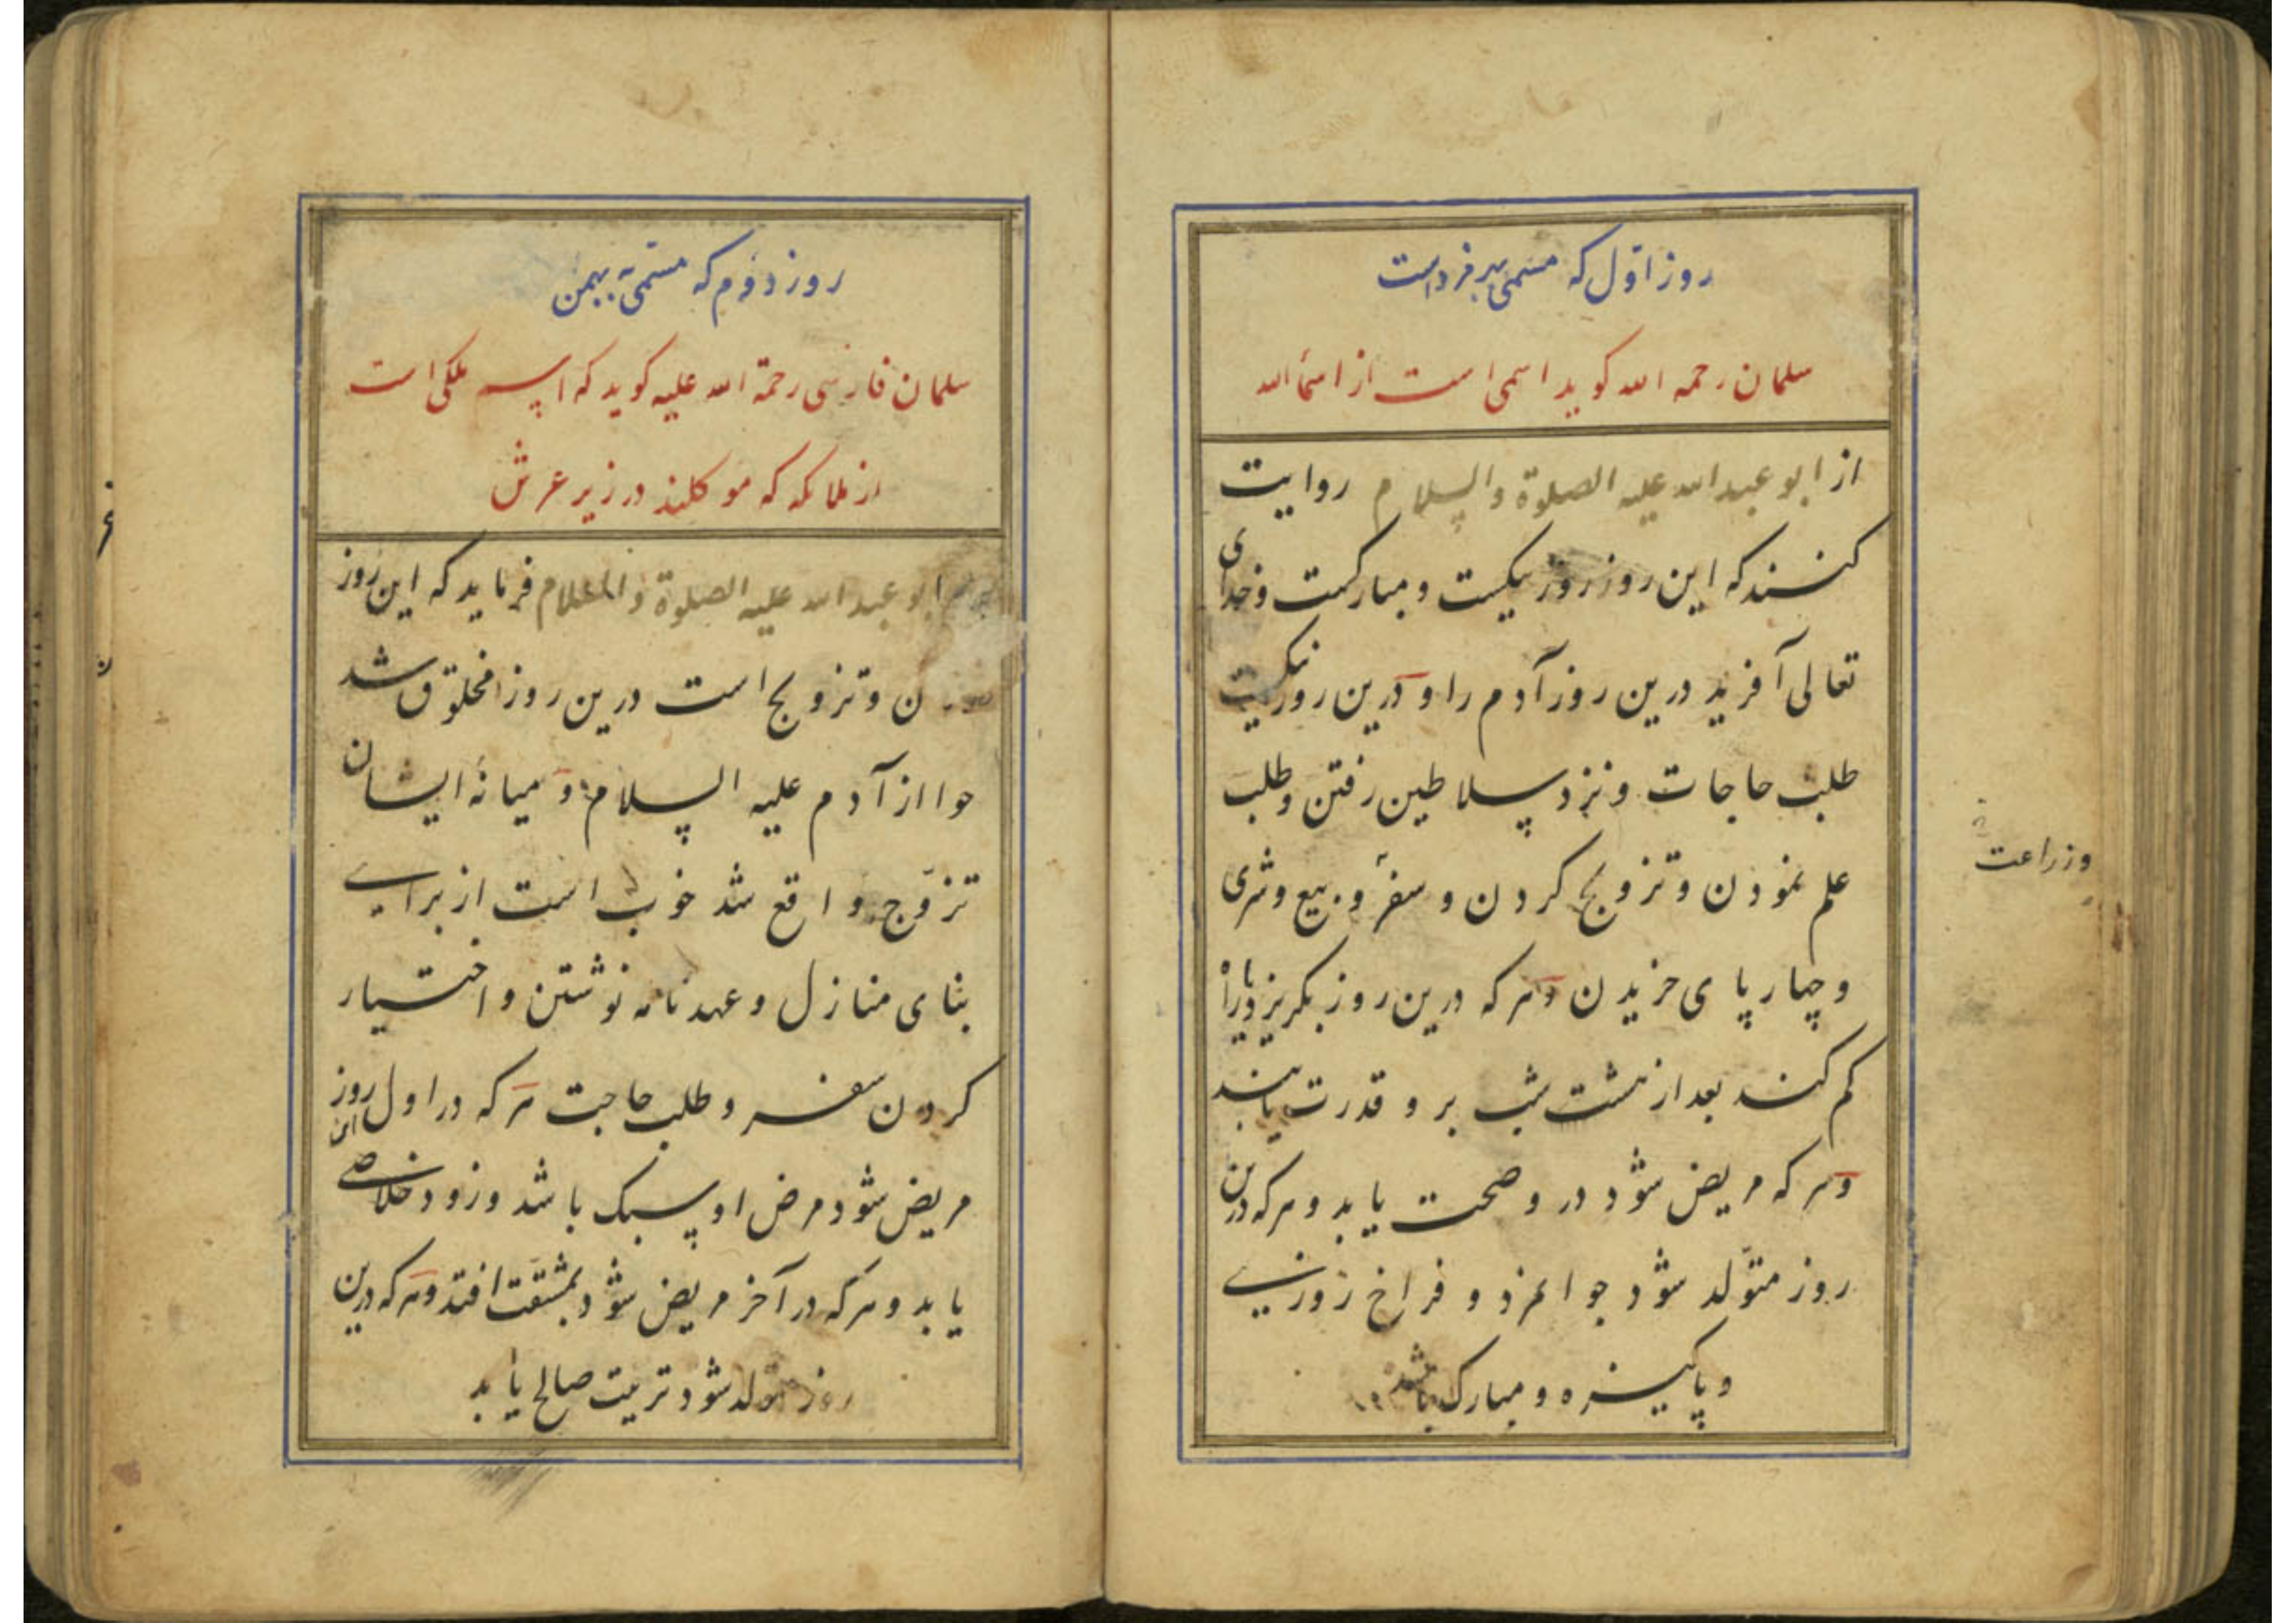 روز اوّل که مسمّی بهرمزد است
سلمان رحمه الله کوید اسمی است از اسمأ الله
از ابو عبدالله علیه الصلوة والسلام روایت
کنند که این روز روز نیکست و مبارکست و خدای
تعالی آفرید درین روز آدم را و درین روز نیکست
طلب حاجات و نزد سلاطین رفتن و طلب
علم نمودن و تزویج کردن و سفر و بیع و شری
وزراعت
و چهار پای خریدن و هر که درین روز بکریزد یا راه
کم کند بعد از هشت شب بر و قدرت یابند
و هر که مریض شود در و صحت یابد و هر که درین
روز متوّلد شود جوانمرد و فراخ روزی
و پاکیزه و مبارک باشد
روز دوّم که مسمّی به بهمن
سلمان فارسی رحمة الله علیه کوید که اسم ملکی است
از ملائکه که موکلند در زیر عرش
ابو عبدالله علیه الصلوة والسلام فرماید که این روز
وتزویج است درین روز مخلوق شد
حوا از آدم علیه السلام و میانهٔ ایشان
تزوّج واقع شد خوب است از برای
بنای منازل و عهدنامه نوشتن و اختیار
کردن سفر و طلب حاجت هر که در اول روز این
مریض شود مرض او سبک باشد وزود خلاصی
یابد و هر که در آخر مریض شود بمشقّت افتد و هر که درین
روز متولد شود تربیت صالح یابد